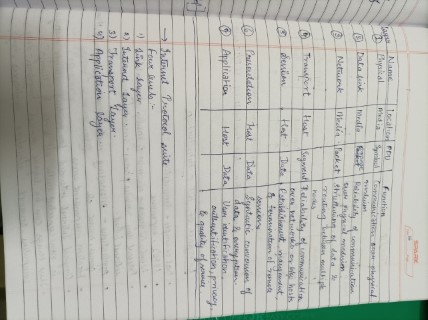 Layer Name Location PDU Function
① Physical Media Symbol Communication over physical medium
② Data Link Media Reliability of communication over physical medium
③ Network Media Packet Structuring of data & routing between multiple nodes
④ Transport Host Segment Reliability of communication over networks or b/w hosts
⑤ Session Host Data Establishment, management, & termination of sessions
⑥ Presentation Host Data Syntactic conversion of data & encryption
⑦ Application Host Data User identification, authentification, privacy & quality of service
→ Internet Protocol suite
Four levels:-
1) Link Layer
2) Internet Layer
3) Transport Layer
4) Application Layer